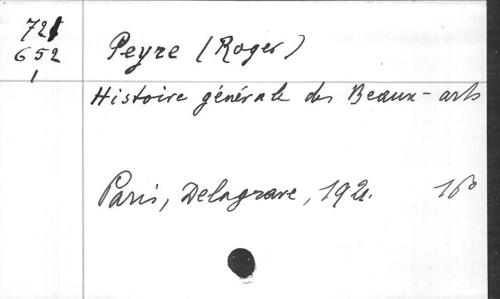 721
652
1
Peyre (Roger)
Histoire générale des Beaux-arts
Paris, Delagrave, 1921. 16°